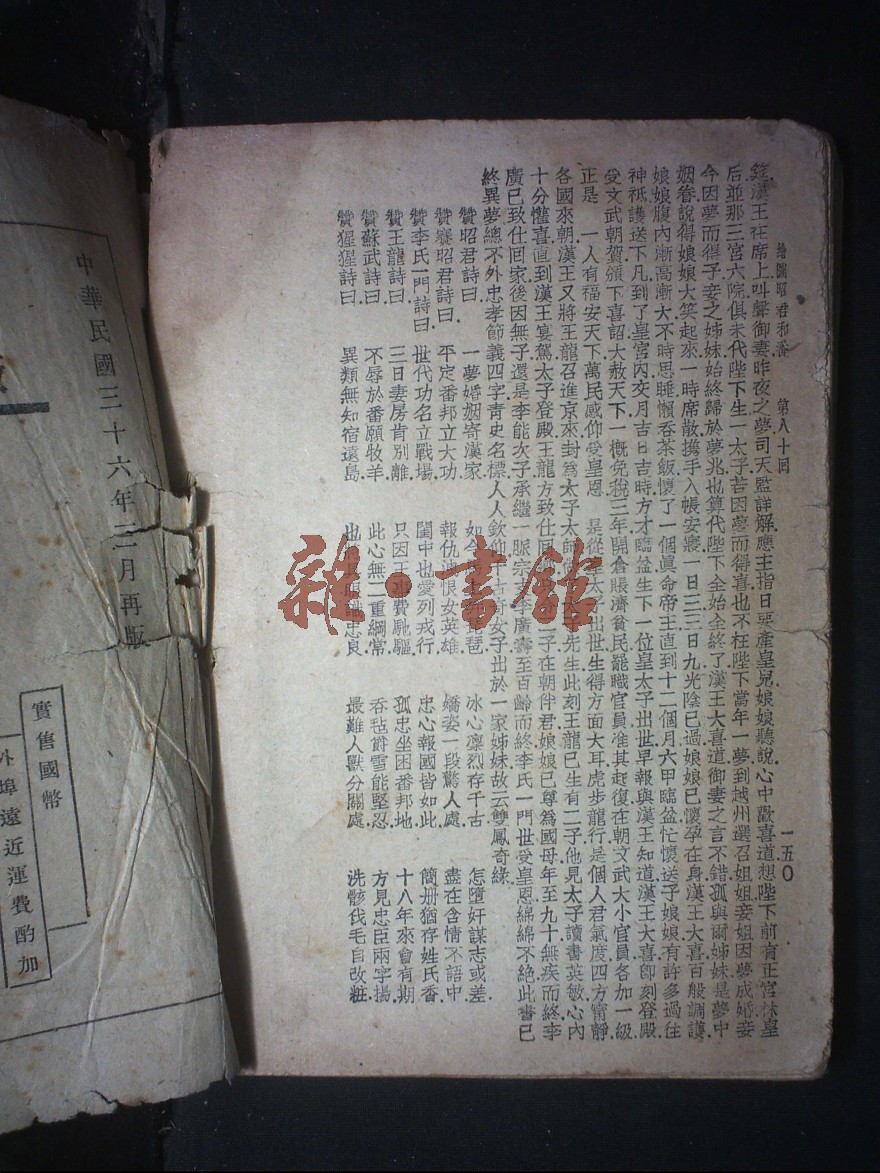 繪圖昭君和番 第八十回 一五〇
筵.漢王在席上叫聲御妻昨夜之夢司天監詳解應主指日要產皇兒娘娘聽說心中歡喜道想陛下前有正宮林皇
后並那三宮六院俱未代陛下生一太子若因夢而得喜也不枉陛下當年一夢到越州選召姐姐妾姐因夢成婚妾
今因夢而得子妾之姊妹始終歸於夢兆也算代陛下全始全終了漢王大喜道御妻之言不錯孤與爾姊妹是夢中
姻眷說得娘娘大笑起來一時席散携手入帳安寢一日三三日九光陰已過娘娘已懷孕在身漢王大喜百般調護
娘娘腹內漸高漸大不時思睡懶吞茶飯懷了一個眞命帝王直到十二個月六甲臨盆忙懷送子娘娘有許多過往
神祗護送下凡到了皇宮內交月吉日吉時方才臨盆生下一位皇太子出世早報與漢王知道漢王大喜卽刻登殿
受文武朝賀頒下喜詔大赦天下一概免稅三年開倉賬濟貧民罷職官員准其起復在朝文武大小官員各加一級
正是 一人有福安天下萬民感仰受皇恩 是從太出世生得方面大耳虎步龍行是個人君氣度四方甯靜
各國來朝漢王又將王龍召進京來封爲太子太師先生此刻王龍已生有二子他見太子讀書英敏心內
十分懽喜直到漢王宴駕太子登殿王龍方致仕回二子在朝伴君娘娘已尊爲國母年至九十無疾而終李
廣已致仕回家後因無子還是李能次子承繼一脈宗李廣壽至百齡而終李氏一門世受皇恩綿綿不絶此書已
終異夢總不外忠孝節義四字靑史名標人人欽仰女子出於一家姊妹故云雙鳳奇緣.
贊昭君詩曰. 一夢婚姻寄漢家. 如今琵琶. 冰心凛烈存千古 怎墮奸謀志或差.
贊賽昭君詩曰. 平定番邦立大功. 報仇洩恨女英雄. 嬌姿一段驚人處. 盡在含情不語中.
贊李氏一門詩曰 世代功名立戰場. 閨中也愛列戎行. 忠心報國皆如此. 簡册猶存姓氏香.
贊王龍詩曰. 三日妻房肯別離. 只因王費馳驅. 孤忠坐困番邦地. 十八年來會有期.
贊蘇武詩曰. 不辱於番願牧羊. 此心無二重綱常. 吞毡爵雪能堅忍. 方見忠臣兩字揚.
贊猩猩詩曰. 異類無知宿遠島. 也識忠良. 最難人獸分關處. 洗骸伐毛自改粧.
雜·書館
中華民國三十六年二月再版
實售國幣
外埠遠近運費酌加